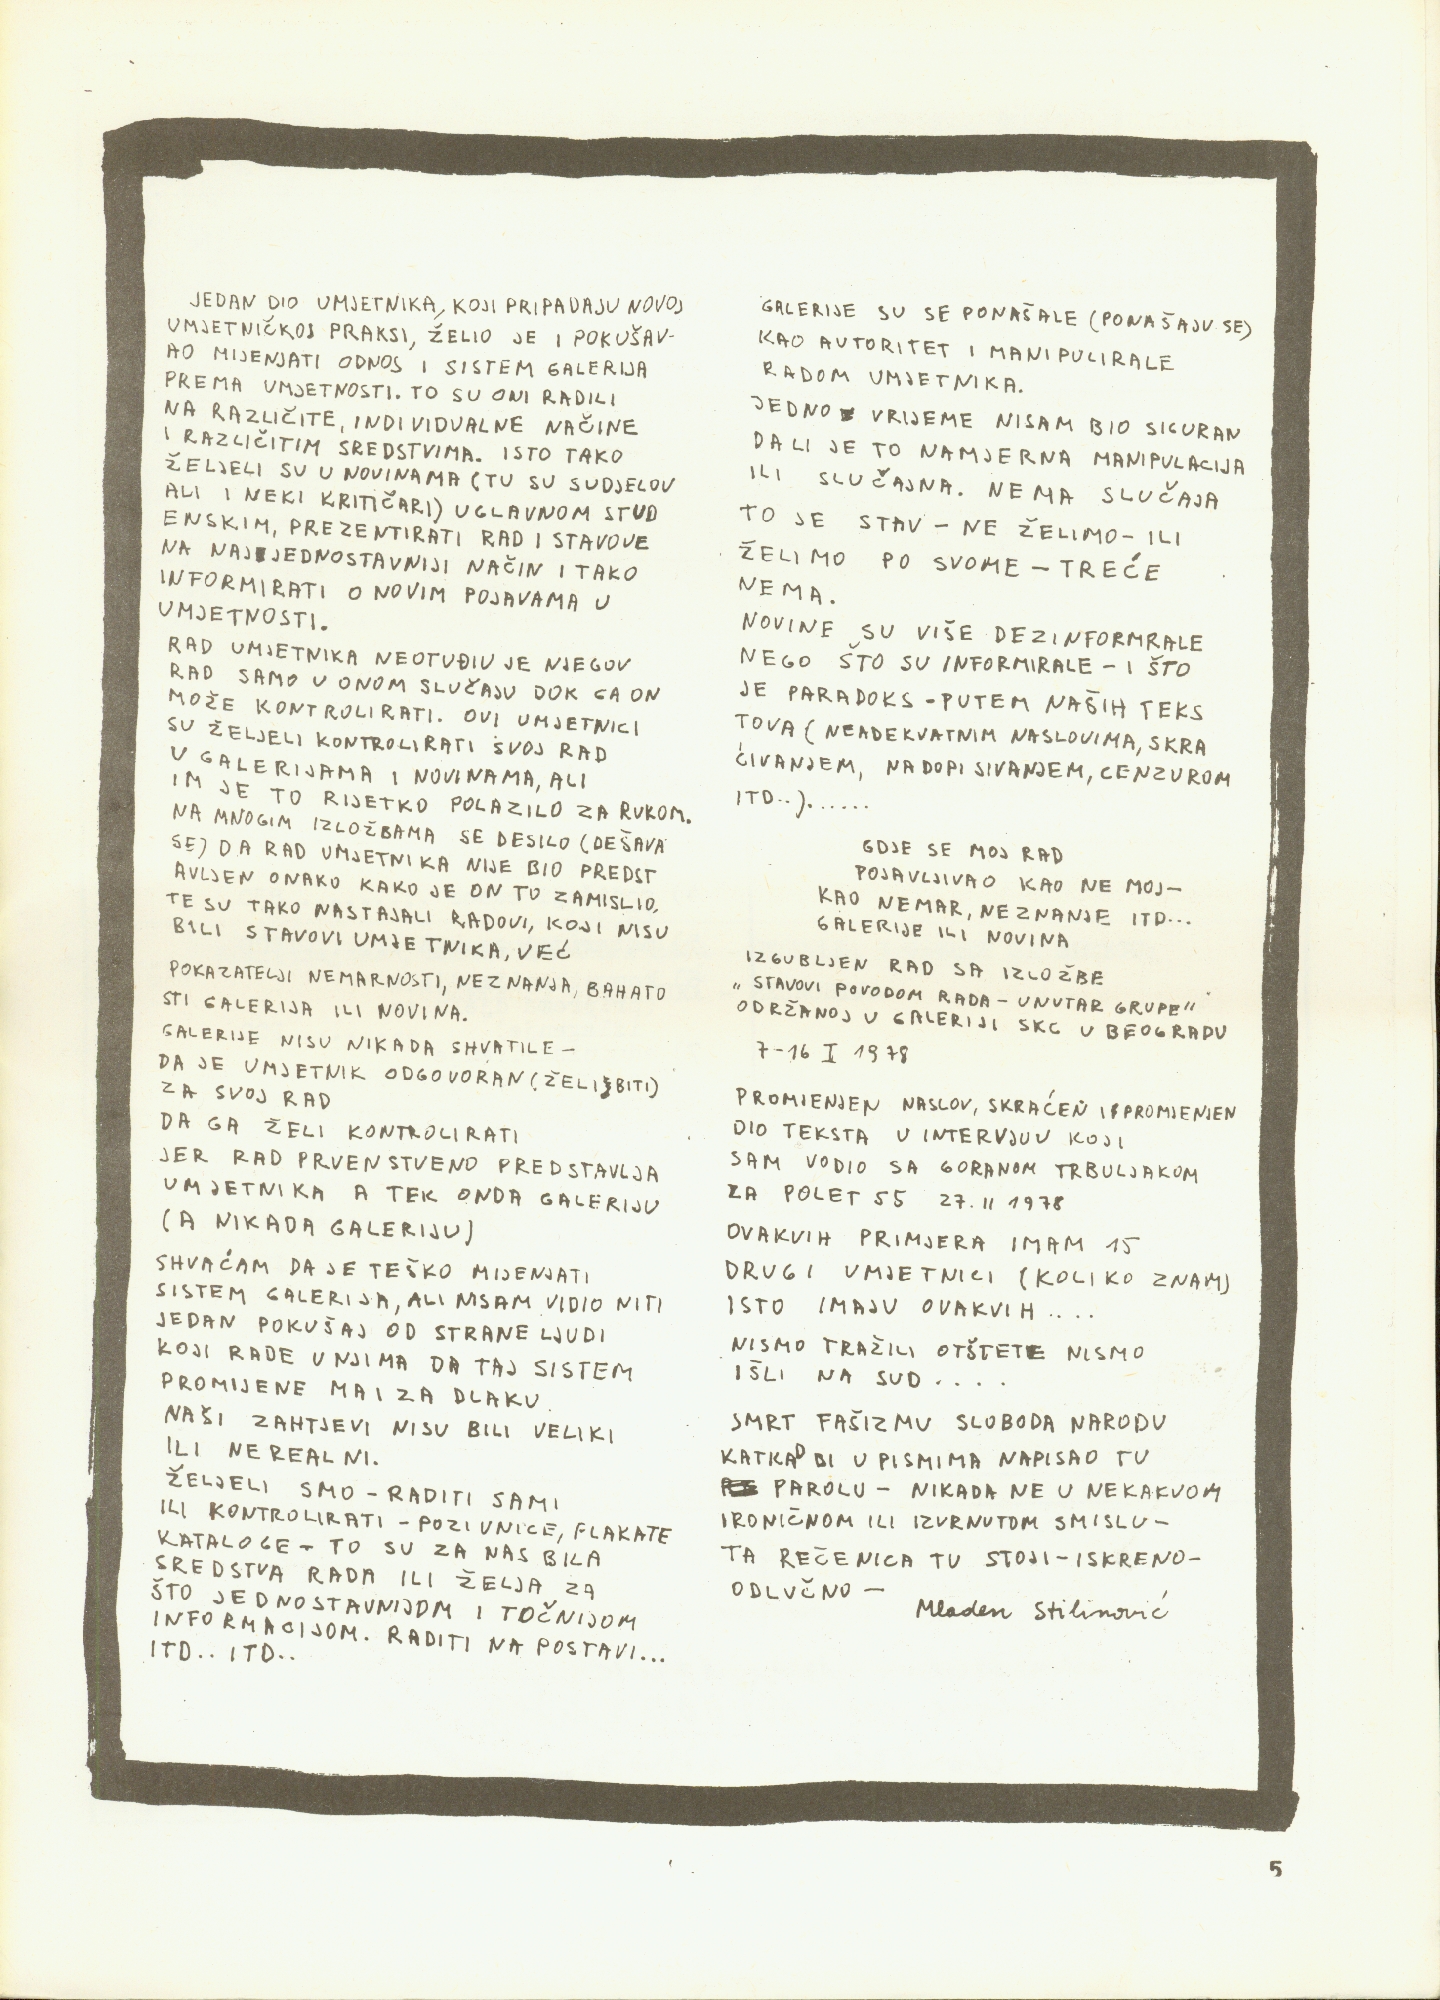 JEDAN DIO UMJETNIKA, KOJI PRIPADAJU NOVOJ
UMJETNIČKOJ PRAKSI, ŽELIO JE I POKUŠAV-
AO MIJENJATI ODNOS I SISTEM GALERIJA
PREMA UMJETNOSTI. TO SU ONI RADILI
NA RAZLIČITE, INDIVIDUALNE NAČINE
I RAZLIČITIM SREDSTVIMA. ISTO TAKO
ŽELJELI SU U NOVINAMA (TU SU SUDJELOV
ALI I NEKI KRITIČARI) UGLAVNOM STUD
ENSKIM, PREZENTIRATI RAD I STAVOVE
NA NAJJEDNOSTAVNIJI NAČIN I TAKO
INFORMIRATI O NOVIM POJAVAMA U
UMJETNOSTI.
RAD UMJETNIKA NEOTUĐIV JE NJEGOV
RAD SAMO U ONOM SLUČAJU DOK GA ON
MOŽE KONTROLIRATI. OVI UMJETNICI
SU ŽELJELI KONTROLIRATI SVOJ RAD
U GALERIJAMA I NOVINAMA, ALI
IM JE TO RIJETKO POLAZILO ZA RUKOM.
NA MNOGIM IZLOŽBAMA SE DESILO (DEŠAVA
SE) DA RAD UMJETNIKA NIJE BIO PREDST
AVLJEN ONAKO KAKO JE ON TO ZAMISLIO,
TE SU TAKO NASTAJALI RADOVI, KOJI NISU
BILI STAVOVI UMJETNIKA, VEĆ
POKAZATELJI NEMARNOSTI, NEZNANJA, BAHATO
STI GALERIJA ILI NOVINA.
GALERIJE NISU NIKADA SHVATILE –
DA JE UMJETNIK ODGOVORAN (ŽELI BITI)
ZA SVOJ RAD
DA GA ŽELI KONTROLIRATI
JER RAD PRVENSTVENO PREDSTAVLJA
UMJETNIKA A TEK ONDA GALERIJU
(A NIKADA GALERIJU)
SHVAĆAM DA JE TEŠKO MIJENJATI
SISTEM GALERIJA, ALI NISAM VIDIO NITI
JEDAN POKUŠAJ OD STRANE LJUDI
KOJI RADE U NJIMA DA TAJ SISTEM
PROMIJENE MA I ZA DLAKU.
NAŠI ZAHTJEVI NISU BILI VELIKI
ILI NEREALNI.
ŽELJELI SMO – RADITI SAMI
ILI KONTROLIRATI – POZIVNICE, PLAKATE
KATALOGE – TO SU ZA NAS BILA
SREDSTVA RADA ILI ŽELJA ZA
ŠTO JEDNOSTAVNIJOM I TOČNIJOM
INFORMACIJOM. RADITI NA POSTAVI...
ITD.. ITD..
GALERIJE SU SE PONAŠALE (PONAŠAJU SE)
KAO AUTORITET I MANIPULIRALE
RADOM UMJETNIKA.
JEDNO VRIJEME NISAM BIO SIGURAN
DA LI JE TO NAMJERNA MANIPULACIJA
ILI SLUČAJNA. NEMA SLUČAJA
TO JE STAV – NE ŽELIMO – ILI
ŽELIMO PO SVOME – TREĆE
NEMA.
NOVINE SU VIŠE DEZINFORMRALE
NEGO ŠTO SU INFORMIRALE – I ŠTO
JE PARADOKS - PUTEM NAŠIH TEKS
TOVA (NEADEKVATNIM NASLOVIMA, SKRA
ĆIVANJEM, NADOPISIVANJEM, CENZUROM
ITD..)......
GDJE SE MOJ RAD
POJAVLJIVAO KAO NE MOJ –
KAO NEMAR, NEZNANJE ITD...
GALERIJE ILI NOVINA
IZGUBLJEN RAD SA IZLOŽBE
„STAVOVI POVODOM RADA – UNUTAR GRUPE"
ODRŽANOJ U GALERIJI SKC U BEOGRADU
7-16 I 1978
PROMJENJEN NASLOV, SKRAĆEN I PROMJENJEN
DIO TEKSTA U INTERVJUU KOJI
SAM VODIO SA GORANOM TRBULJAKOM
ZA POLET 55 27. II 1978
OVAKVIH PRIMJERA IMAM 15
DRUGI UMJETNICI (KOLIKO ZNAM)
ISTO IMAJU OVAKVIH ....
NISMO TRAŽILI OTŠTETE NISMO
IŠLI NA SUD ....
SMRT FAŠIZMU SLOBODA NARODU
KATKAD BI U PISMIMA NAPISAO TU
PAROLU – NIKADA NE U NEKAKVOM
IRONIČNOM ILI IZVRNUTOM SMISLU –
TA REČENICA TU STOJI – ISKRENO –
ODLUČNO –
Mladen Stilinović
5